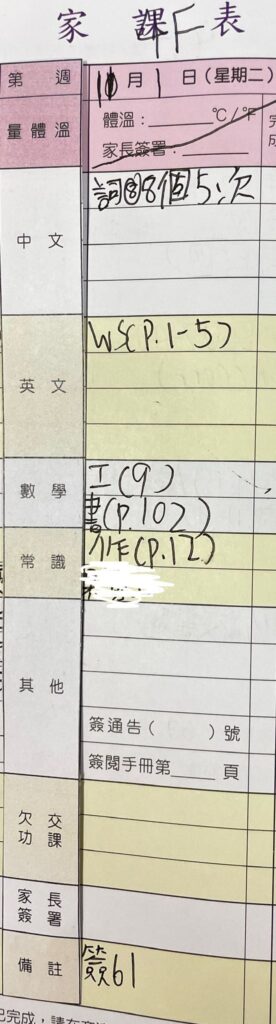 家課表
4F
第 週 11月1日(星期二)
量體溫 體溫:______℃/°F
家長簽署:______
中文 詞⑧8個5次
英文 WS(P.1-5)
數學 工(9)
書(p.102)
常識 作(p.12)
其他
簽通告( )號
簽閱手冊第____頁
欠交功課
家長簽署
備註 簽61